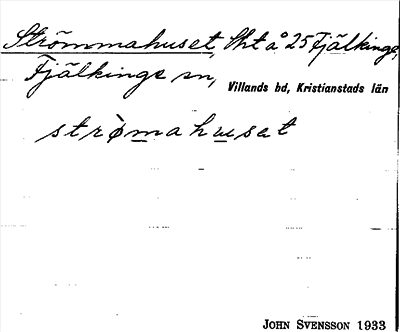 Strömmahuset, Lht å 25 Fjälkinge,
Fjälkinge sn, Villands hd, Kristianstads län
strömahuset
JOHN SVENSSON 1933